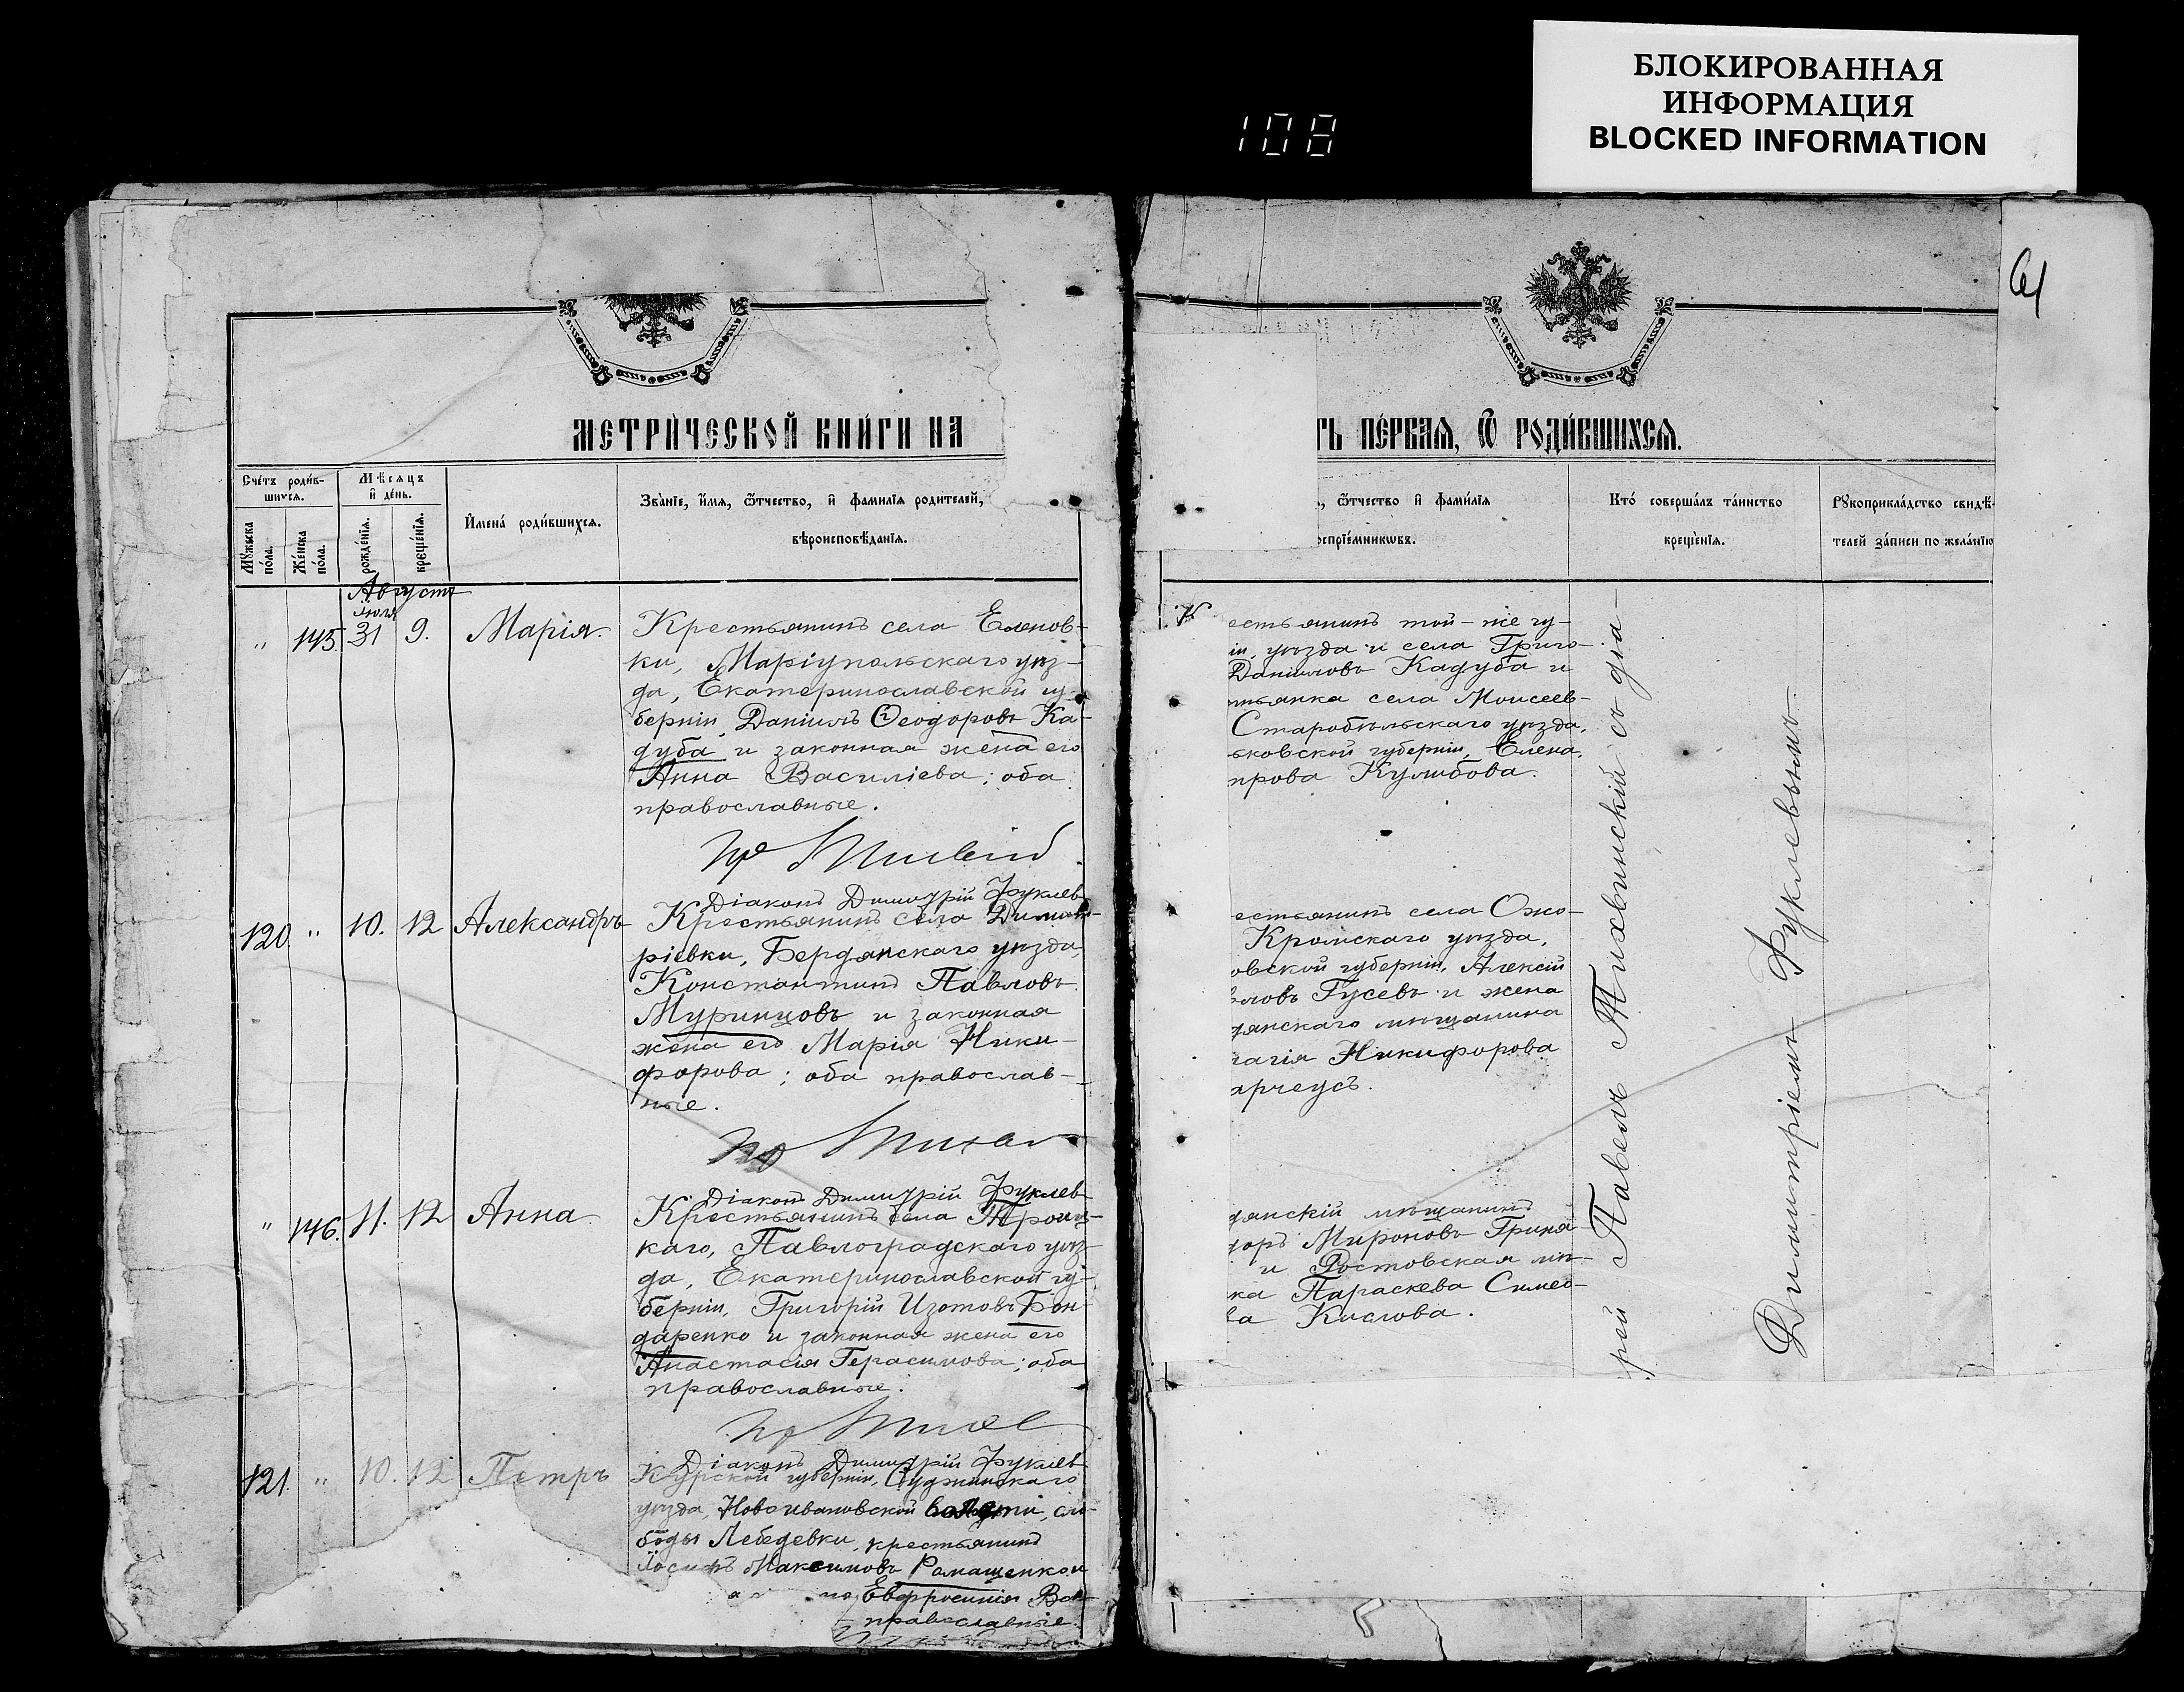 БЛОКИРОВАННАЯ
ИНФОРМАЦИЯ
BLOCKED INFORMATION
108
61
МЕТРИ́ЧЕСКОЙ КНИ́ГИ НА
ТЬ ПЕ́РВАЯ, Ѿ РОДИ́ВШИХСЯ.
Сче́тъ роди́в-
шихся.
Мѣсяцъ
и҆ де́нь.
Мꙋ́жеска
по́ла.
Же́нска
по́ла.
рожде́нїя.
креще́нїя.
И҆мена̀ роди́вшихся.
Зва́нїе, и҆́мя, ѿтчество, и҆ фами́лїя роди́телей,
вѣроисповѣ́данїя.
, ѿтчество и҆ фами́лїя
оспрїе́мникѡвъ.
Кто̀ соверша́лъ та́инство
креще́нїя.
Рꙋкоприкла́дство свидѣ́-
телей за́писи по жела́нїю
Августъ
Іюля
„ 145. 31 9. Марія.
Крестьянинъ села Еленов-
ки, Маріупольскаго уѣз-
да, Екатеринославской гу-
берніи, Даніилъ Ѳеодоровъ Ка-
дуба и законная жена его
Анна Василіева; оба
православные.
Діаконъ Димитрій Фуклев
К естьянинъ той-же гу-
іи, уѣзда и села Григо-
Даніиловъ Кадуба и
тьянка села Моисеев-
Старобѣльскаго уѣзда,
ьковской губерніи, Елена
прова Кулибова.
120. „ 10. 12 Александръ
Крестьянинъ села Димит-
ріевки, Бердянскаго уѣзда,
Константинъ Павловъ
Муринцовъ и законная
жена его Марія Ники-
форова; оба православ-
ные.
Діаконъ Димитрій Фуклев
естьянинъ села Ожо-
Кромскаго уѣзда,
овской губерніи, Алексій
вловъ Гусевъ и жена
дянскаго мѣщанина
лагія Никифорова
арчеусъ.
„ 146. 11. 12 Анна.
Крестьянинъ села Троиц-
каго, Павлоградскаго уѣз-
да, Екатеринославской гу-
берніи, Григорій Изотовъ Бон-
даренко и законная жена его
Анастасія Герасимова; оба
православные.
Діаконъ Димитрій Фуклев
дянскій мѣщанинъ
доръ Мироновъ Гриня-
и Ростовская мѣ-
ка Параскева Симео-
ва Кислова.
121. „ 10. 12 Петръ
Курской губерніи, Суджанскаго
уѣзда, Новоивановской волости, сло-
боды Лебедевки, крестьянинъ
Іосифъ Максимовъ Ромащенко и
Евфросинія Ва
православные.
рей Павелъ Тихвинскій съ діа-
Димитріемъ Фуклевымъ.